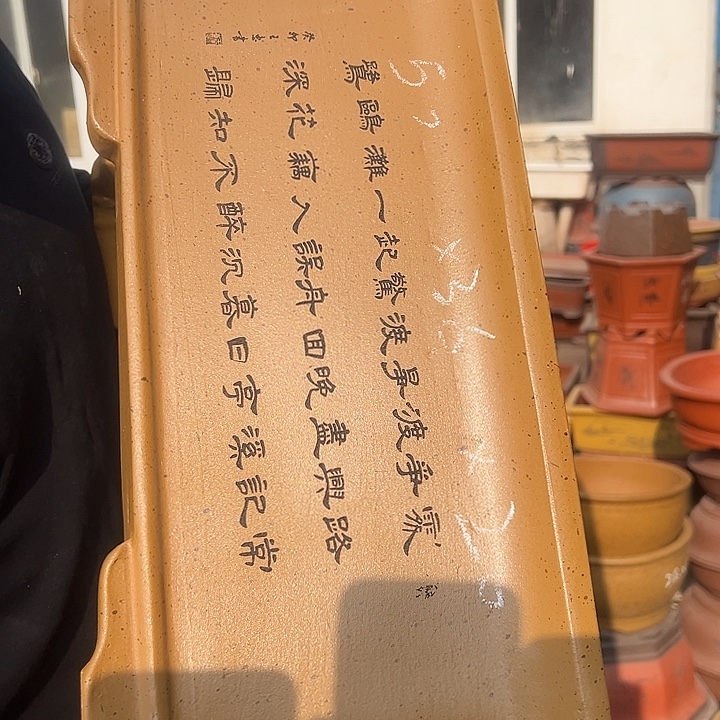 常記溪亭日暮沉醉不知歸
路興盡晚回舟誤入藕花深
處爭渡爭渡驚起一灘鷗鷺
癸卯書
x36 x20